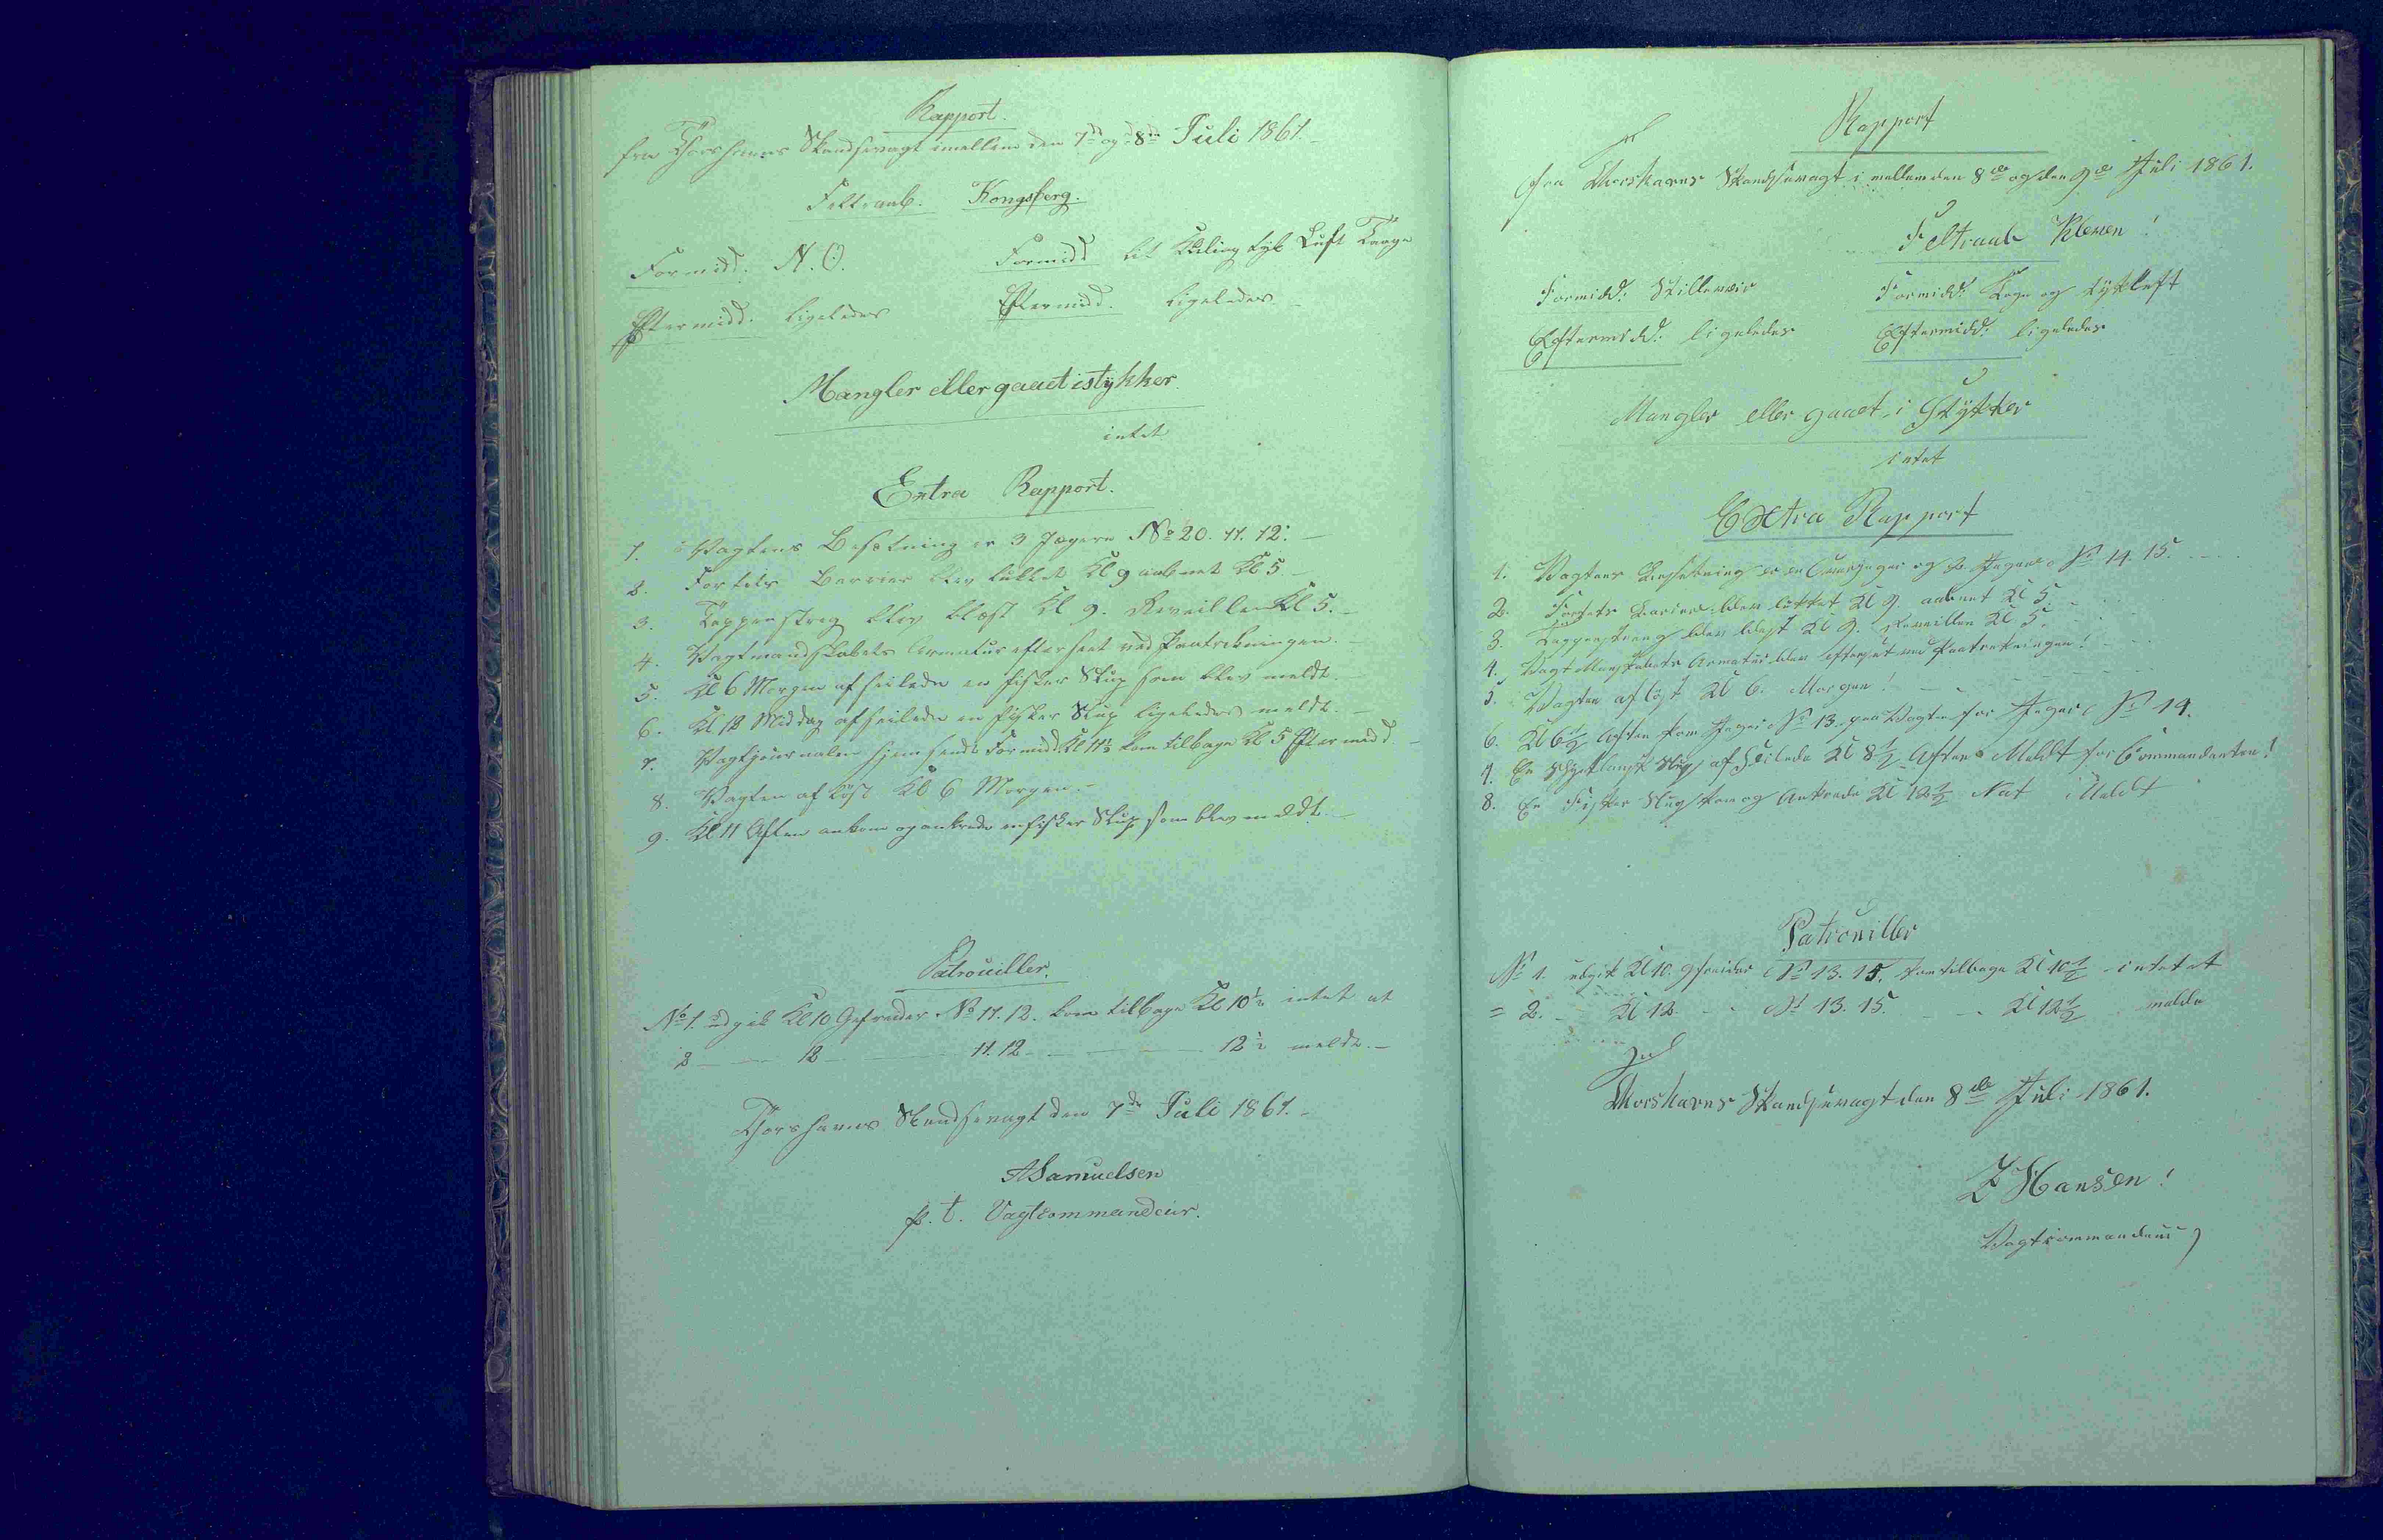 Rapport.
fra Thorshavns Skandsevagt imellem den 7de og 8de Juli 1861.
Feltraab. Kongsberg.
Formidd: N.O. Formidd let Kuling tyk Luft Taage
Eftermidd. ligeledes Eftermidd. ligeledes.
Mangler eller gaaet istykker.
intet
Extra Rapport.
1. Vagtens Besætning er 3 Jægere No 20. 11. 12.
2. Fortets Barrier blev lukket Kl 9 aabnet Kl 5
3. Tappenstreg blev blæst Kl 9. Reveille Kl 5.
4. Vagtmandskabets Armatur efterseet ved Paatrækningen.
5. Kl 6 Morgen afseilede en fisker Slup som blev meldt.
6. Kl 12 Middag afseilede en fisker Slup ligeledes meldt.
7. Vagtjournalen hjemsendt Formidd Kl 11½ kom tilbage Kl 5 Eftermidd
8. Vagten afløst Kl 6 Morgen.
9. Kl 11 Aften ankom og ankrede en fisker Slup som blev meldt.
Patrouiller.
No 1. udgik Kl 10 Gefreider No 11. 12. kom tilbage Kl 10½ intet at
2 — 12 — 11. 12 — 12½ melde.
Thorshavns Skandsevagt den 7de Juli 1861.
ASamuelsen
p. t. Vagtcommandeur.
Rapport
fra Thorshavns Skandsevagt i mellem den 8de og den 9de Juli 1861.
Feltraab Kleven!
Formidd: Stilleveir Formidd: Regn og tykluft
Eftermidd: ligeledes Eftermidd: ligeledes
Mangler eller gaaet i Stykker
intet
Extra Rapport
1. Vagtens Besætning er en Overjæger og 2 Jægere No 14. 15.
2. Fortets Barier blev lukket Kl 9. aabnet Kl 5
3. Tappenstreng blev blæst Kl 9. Reveillen Kl 5.
4. Vagt Mandskabets Armatur blev efterset ved Paatrækningen!
5. Vagten afløst Kl 6. Morgen!
6. Kl 6½ Aften kom Jæger No 13. paa Vagten for Jæger No 14.
7. En Slup afseilede Kl 8½ Aften Meldt for Commandanten!
8. En Fisker Slup kom og Ankrede Kl 12½ Nat Meldt
Patrouiller
No 1. udgik Kl 10. Gfreider No 13. 15. kom tilbage Kl 10½ intet at
= 2. Kl 12 No 13. 15. Kl 12½ melde
Thorshavns Skandsevagt den 8de Juli 1861.
Z Hansen!
Vagtcommandeur